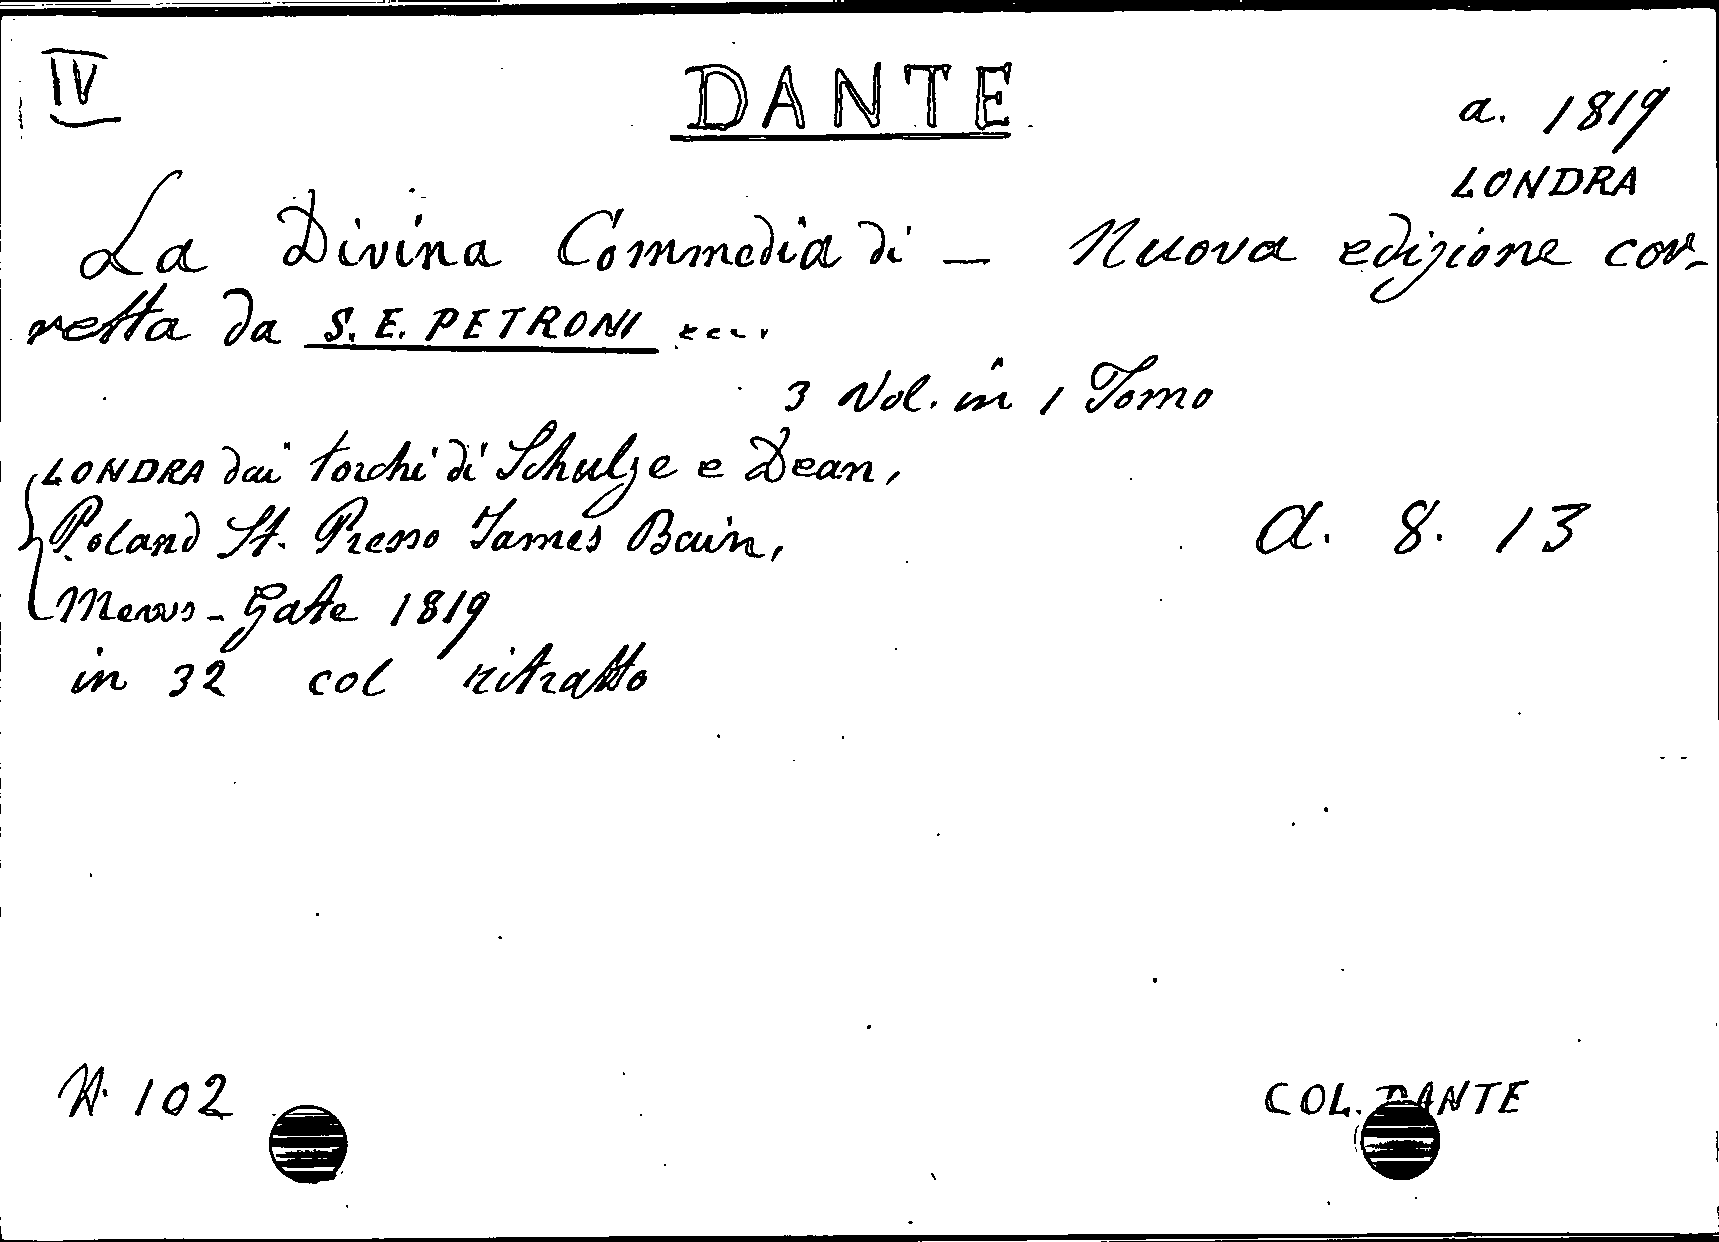 IV
DANTE
a. 1819
LONDRA
La Divina Commedia di — Nuova edizione cor-
retta da S. E. PETRONI ....
3 Vol. in 1 Tomo
LONDRA dai torchi di Schulze e Dean,
Poland St. Presso James Bain,
Mews-Gate 1819
a. 8. 13
in 32 col ritratto
N. 102
COL. DANTE